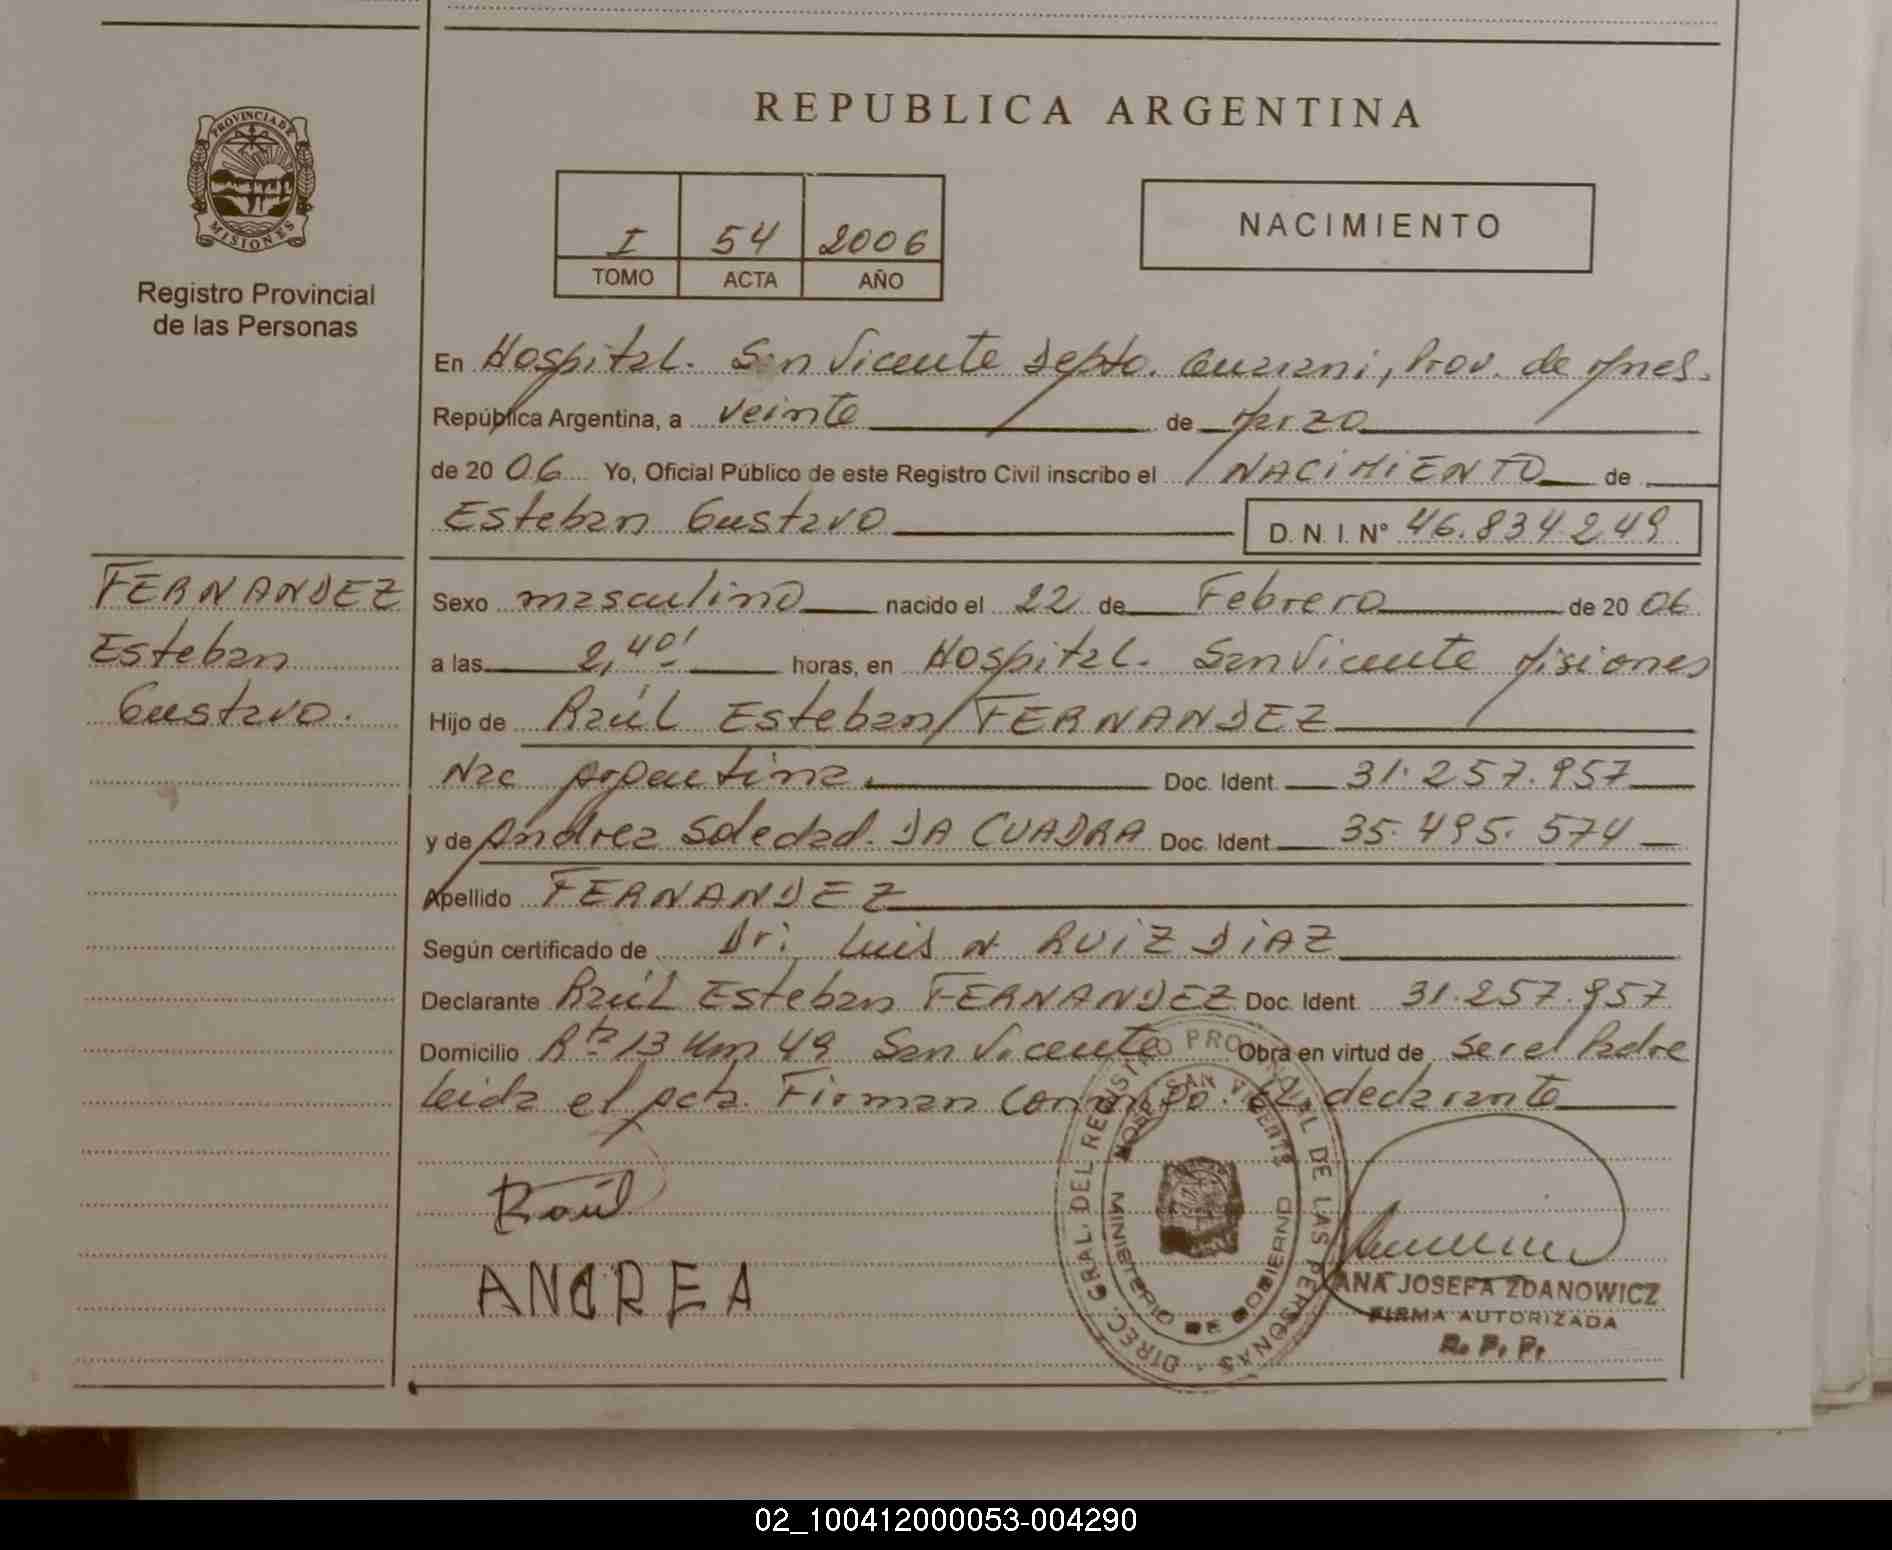 REPUBLICA ARGENTINA
PROVINCIA DE
MISIONES
Registro Provincial
de las Personas
I 54 2006
TOMO ACTA AÑO
NACIMIENTO
En Hospital. San Vicente Depto. Guarani, Prov. de Mnes.
República Argentina, a veinte de Marzo
de 2006 Yo, Oficial Público de este Registro Civil inscribo el NACIMIENTO de
Esteban Gustavo D. N. I. N° 46.834.249
FERNANDEZ
Esteban
Gustavo.
Sexo masculino nacido el 22 de Febrero de 2006
a las 2,40' horas, en Hospital. San Vicente Misiones
Hijo de Raúl Esteban FERNANDEZ
Nac Argentina. Doc. Ident. 31.257.957
y de Andrea Soledad. DA CUADRA Doc. Ident. 35.495.574
Apellido FERNANDEZ
Según certificado de Dr. Luis N. RUIZ DIAZ
Declarante Raúl Esteban FERNANDEZ Doc. Ident. 31.257.957
Domicilio Rta 13 Km 49 San Vicente Obra en virtud de ser el Padre
Leida el Acta. Firman conmigo. El declarante
Raúl
ANDREA
DIREC. GRAL. DEL REGISTRO PROVINCIAL DE LAS PERSONAS
SAN VICENTE
MINISTERIO DE GOBIERNO
ANA JOSEFA ZDANOWICZ
FIRMA AUTORIZADA
R. P. P.
02_100412000053-004290